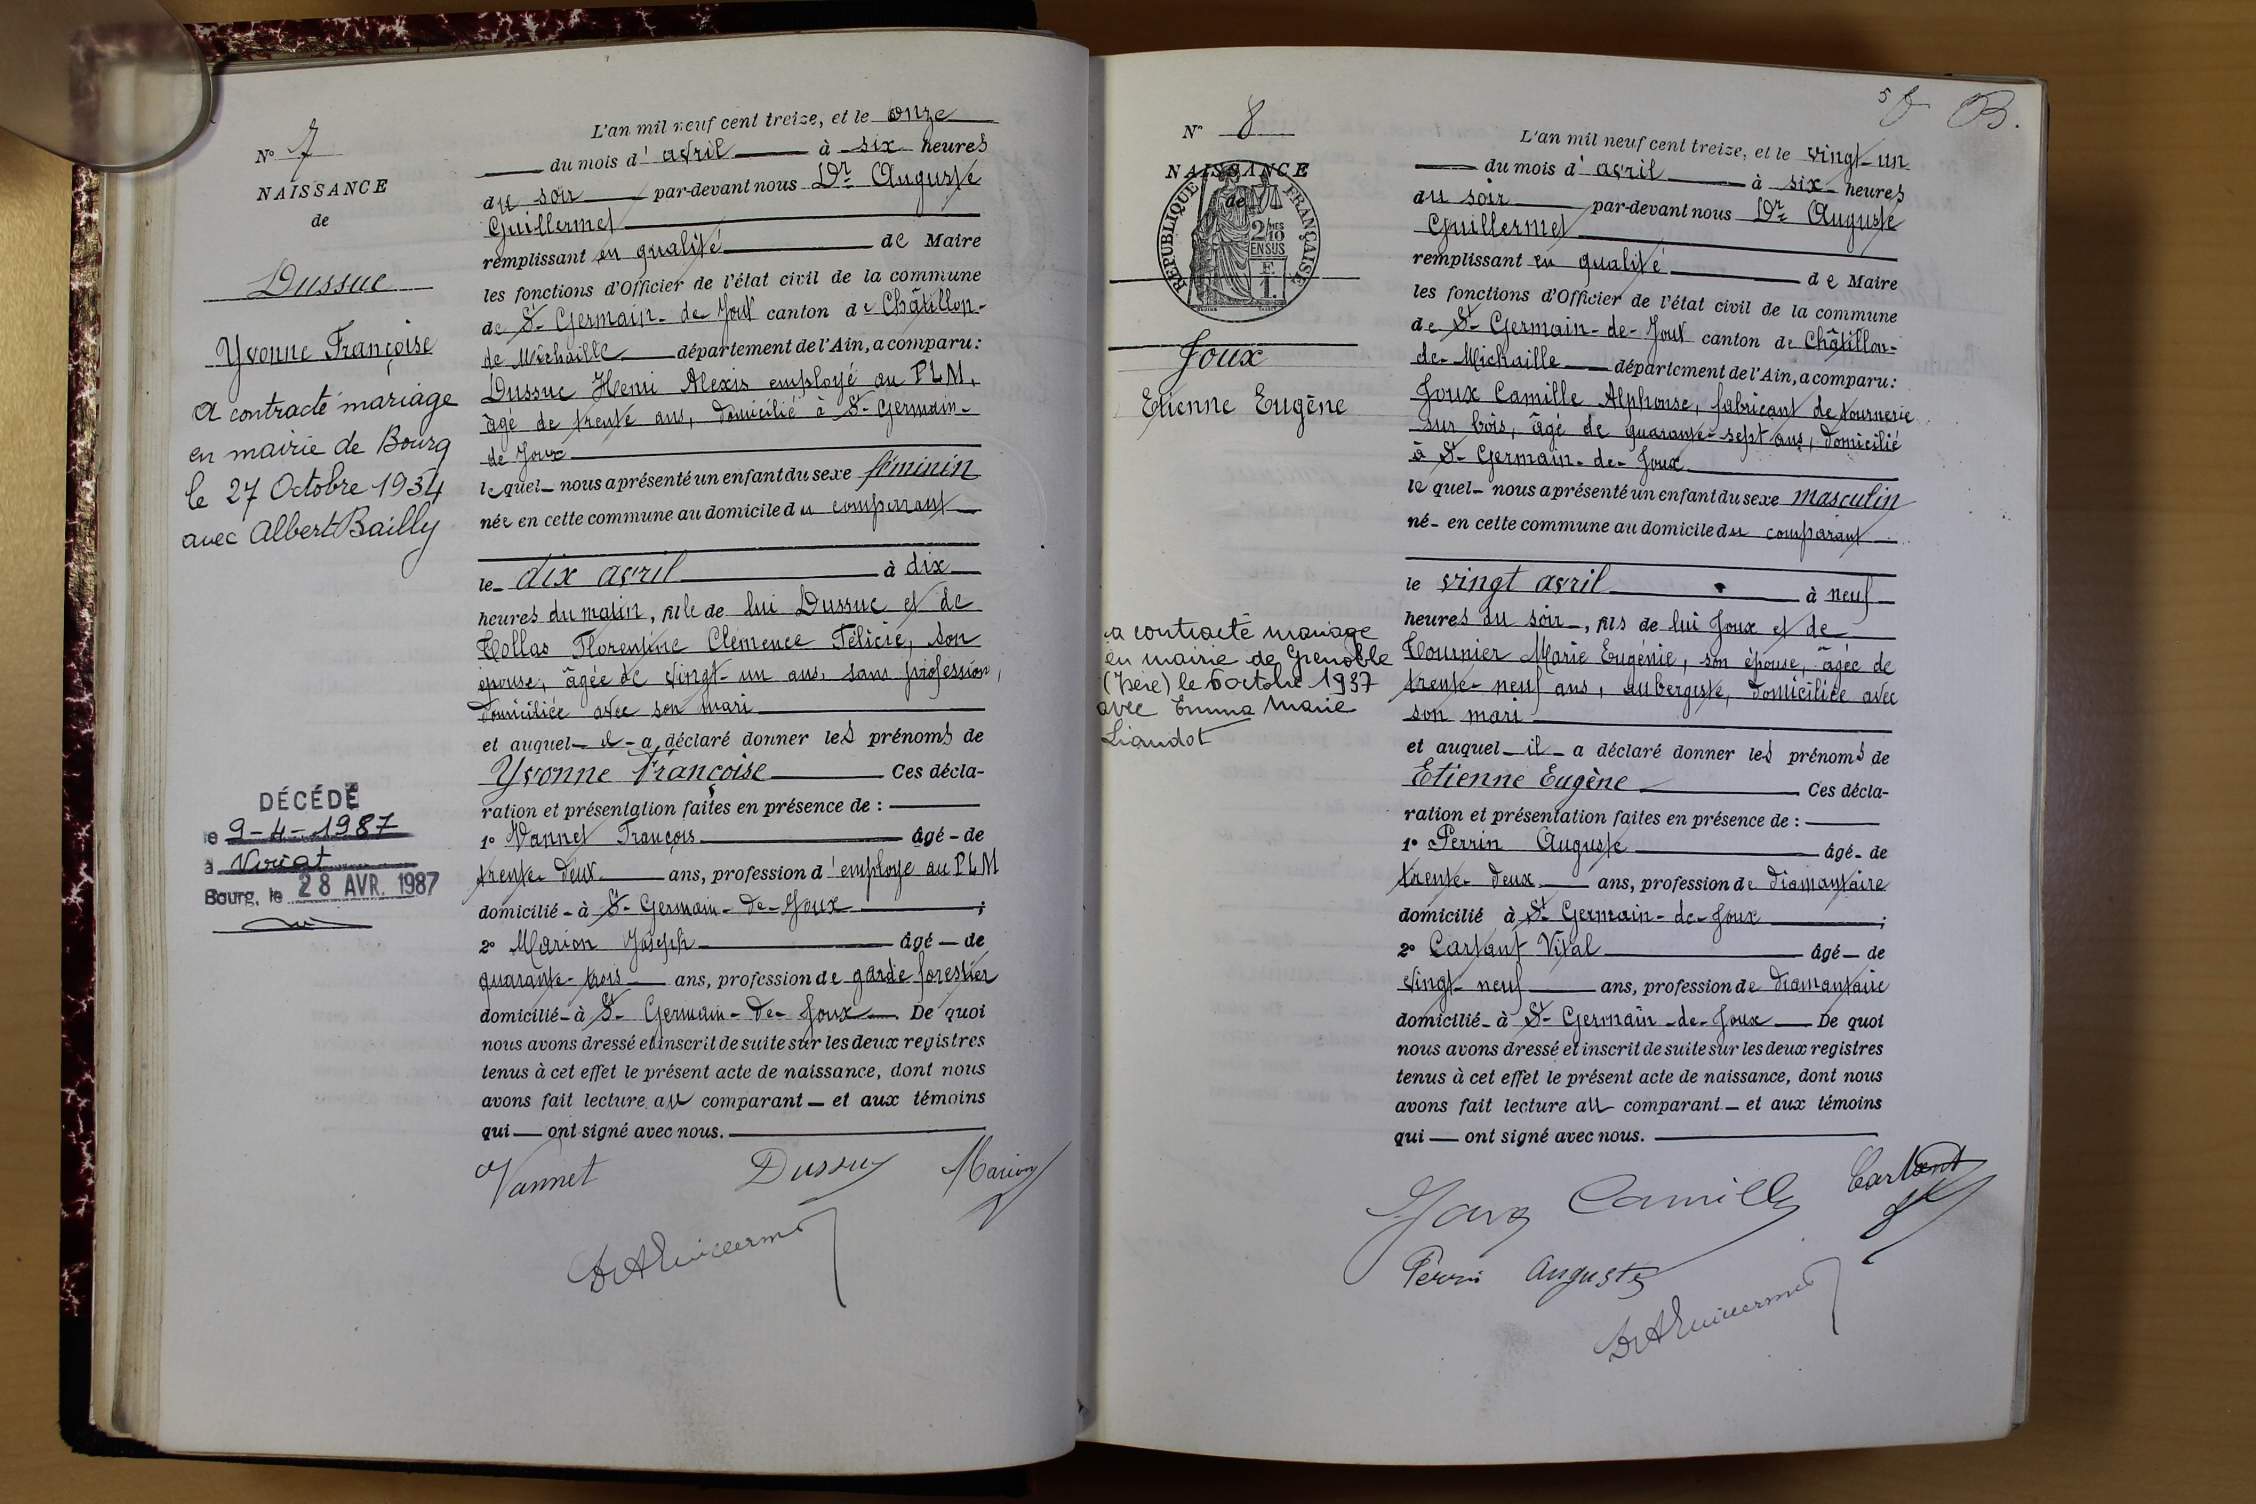 N° 7
NAISSANCE
de
Dussuc
Yvonne Françoise
a contracté mariage
en mairie de Bourg
le 27 Octobre 1934
avec Albert Bailly
DÉCÉDÉ
le 9-4-1987
à Viriat
Bourg, le 28 AVR. 1987
L'an mil neuf cent treize, et le onze
du mois d'avril à six heures
du soir par-devant nous Dr Auguste
Guillermet
remplissant en qualité de Maire
les fonctions d'Officier de l'état civil de la commune
de St-Germain-de-Joux canton de Châtillon-
de Michaille département de l'Ain, a comparu:
Dussuc Henri Alexis employé au PLM,
âgé de trente ans, domicilié à St-Germain-
de Joux
lequel nous a présenté un enfant du sexe féminin
née en cette commune au domicile du comparant
le dix avril à dix
heures du matin, fille de lui Dussuc et de
Collas Florentine Clémence Félicie, son
épouse, âgée de vingt-un ans, sans profession,
domiciliée avec son mari
et auquel il a déclaré donner les prénoms de
Yvonne Françoise Ces décla-
ration et présentation faites en présence de :
1° Vannet François âgé de
trente deux ans, profession d'employé au PLM
domicilié à St-Germain-de-Joux ;
2° Marion Joseph âgé de
quarante-trois ans, profession de garde forestier
domicilié à St-Germain-de-Joux. De quoi
nous avons dressé et inscrit de suite sur les deux registres
tenus à cet effet le présent acte de naissance, dont nous
avons fait lecture au comparant et aux témoins
qui ont signé avec nous.
Vannet Dussuc Marion
Dr A Guillermet
5 B.
N° 8
NAISSANCE
de
RÉPUBLIQUE FRANÇAISE
2/10 MES
EN SUS
F.
1.
Joux
Etienne Eugène
a contracté mariage
en mairie de Grenoble
(Isère) le 6 octobre 1937
avec Emma Marie
Liaudot
L'an mil neuf cent treize, et le vingt-un
du mois d'avril à six heures
du soir par-devant nous Dr Auguste
Guillermet
remplissant en qualité de Maire
les fonctions d'Officier de l'état civil de la commune
de St-Germain-de-Joux canton de Châtillon-
de-Michaille département de l'Ain, a comparu:
Joux Camille Alphonse, fabricant de tournerie
sur bois, âgé de quarante-sept ans, domicilié
à St-Germain-de-Joux
lequel nous a présenté un enfant du sexe masculin
né en cette commune au domicile du comparant
le vingt avril à neuf
heures du soir, fils de lui Joux et de
Tournier Marie Eugénie, son épouse, âgée de
trente-neuf ans, aubergiste, domiciliée avec
son mari
et auquel il a déclaré donner les prénoms de
Etienne Eugène Ces décla-
ration et présentation faites en présence de :
1° Perrin Auguste âgé de
trente-deux ans, profession de diamantaire
domicilié à St Germain-de-Joux ;
2° Cartant Vital âgé de
vingt-neuf ans, profession de diamantaire
domicilié à St-Germain-de-Joux De quoi
nous avons dressé et inscrit de suite sur les deux registres
tenus à cet effet le présent acte de naissance, dont nous
avons fait lecture au comparant et aux témoins
qui ont signé avec nous.
Joux Camille Cartant
Perrin Auguste
Dr A Guillermet